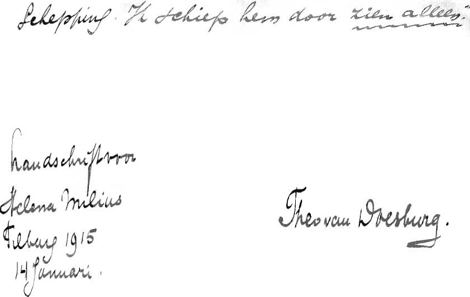 Schepping. Ik schiep hem door zien alleen."
handschrift voor
Helena Milius
Tilburg 1915
14 Januari.
Theo van Doesburg.